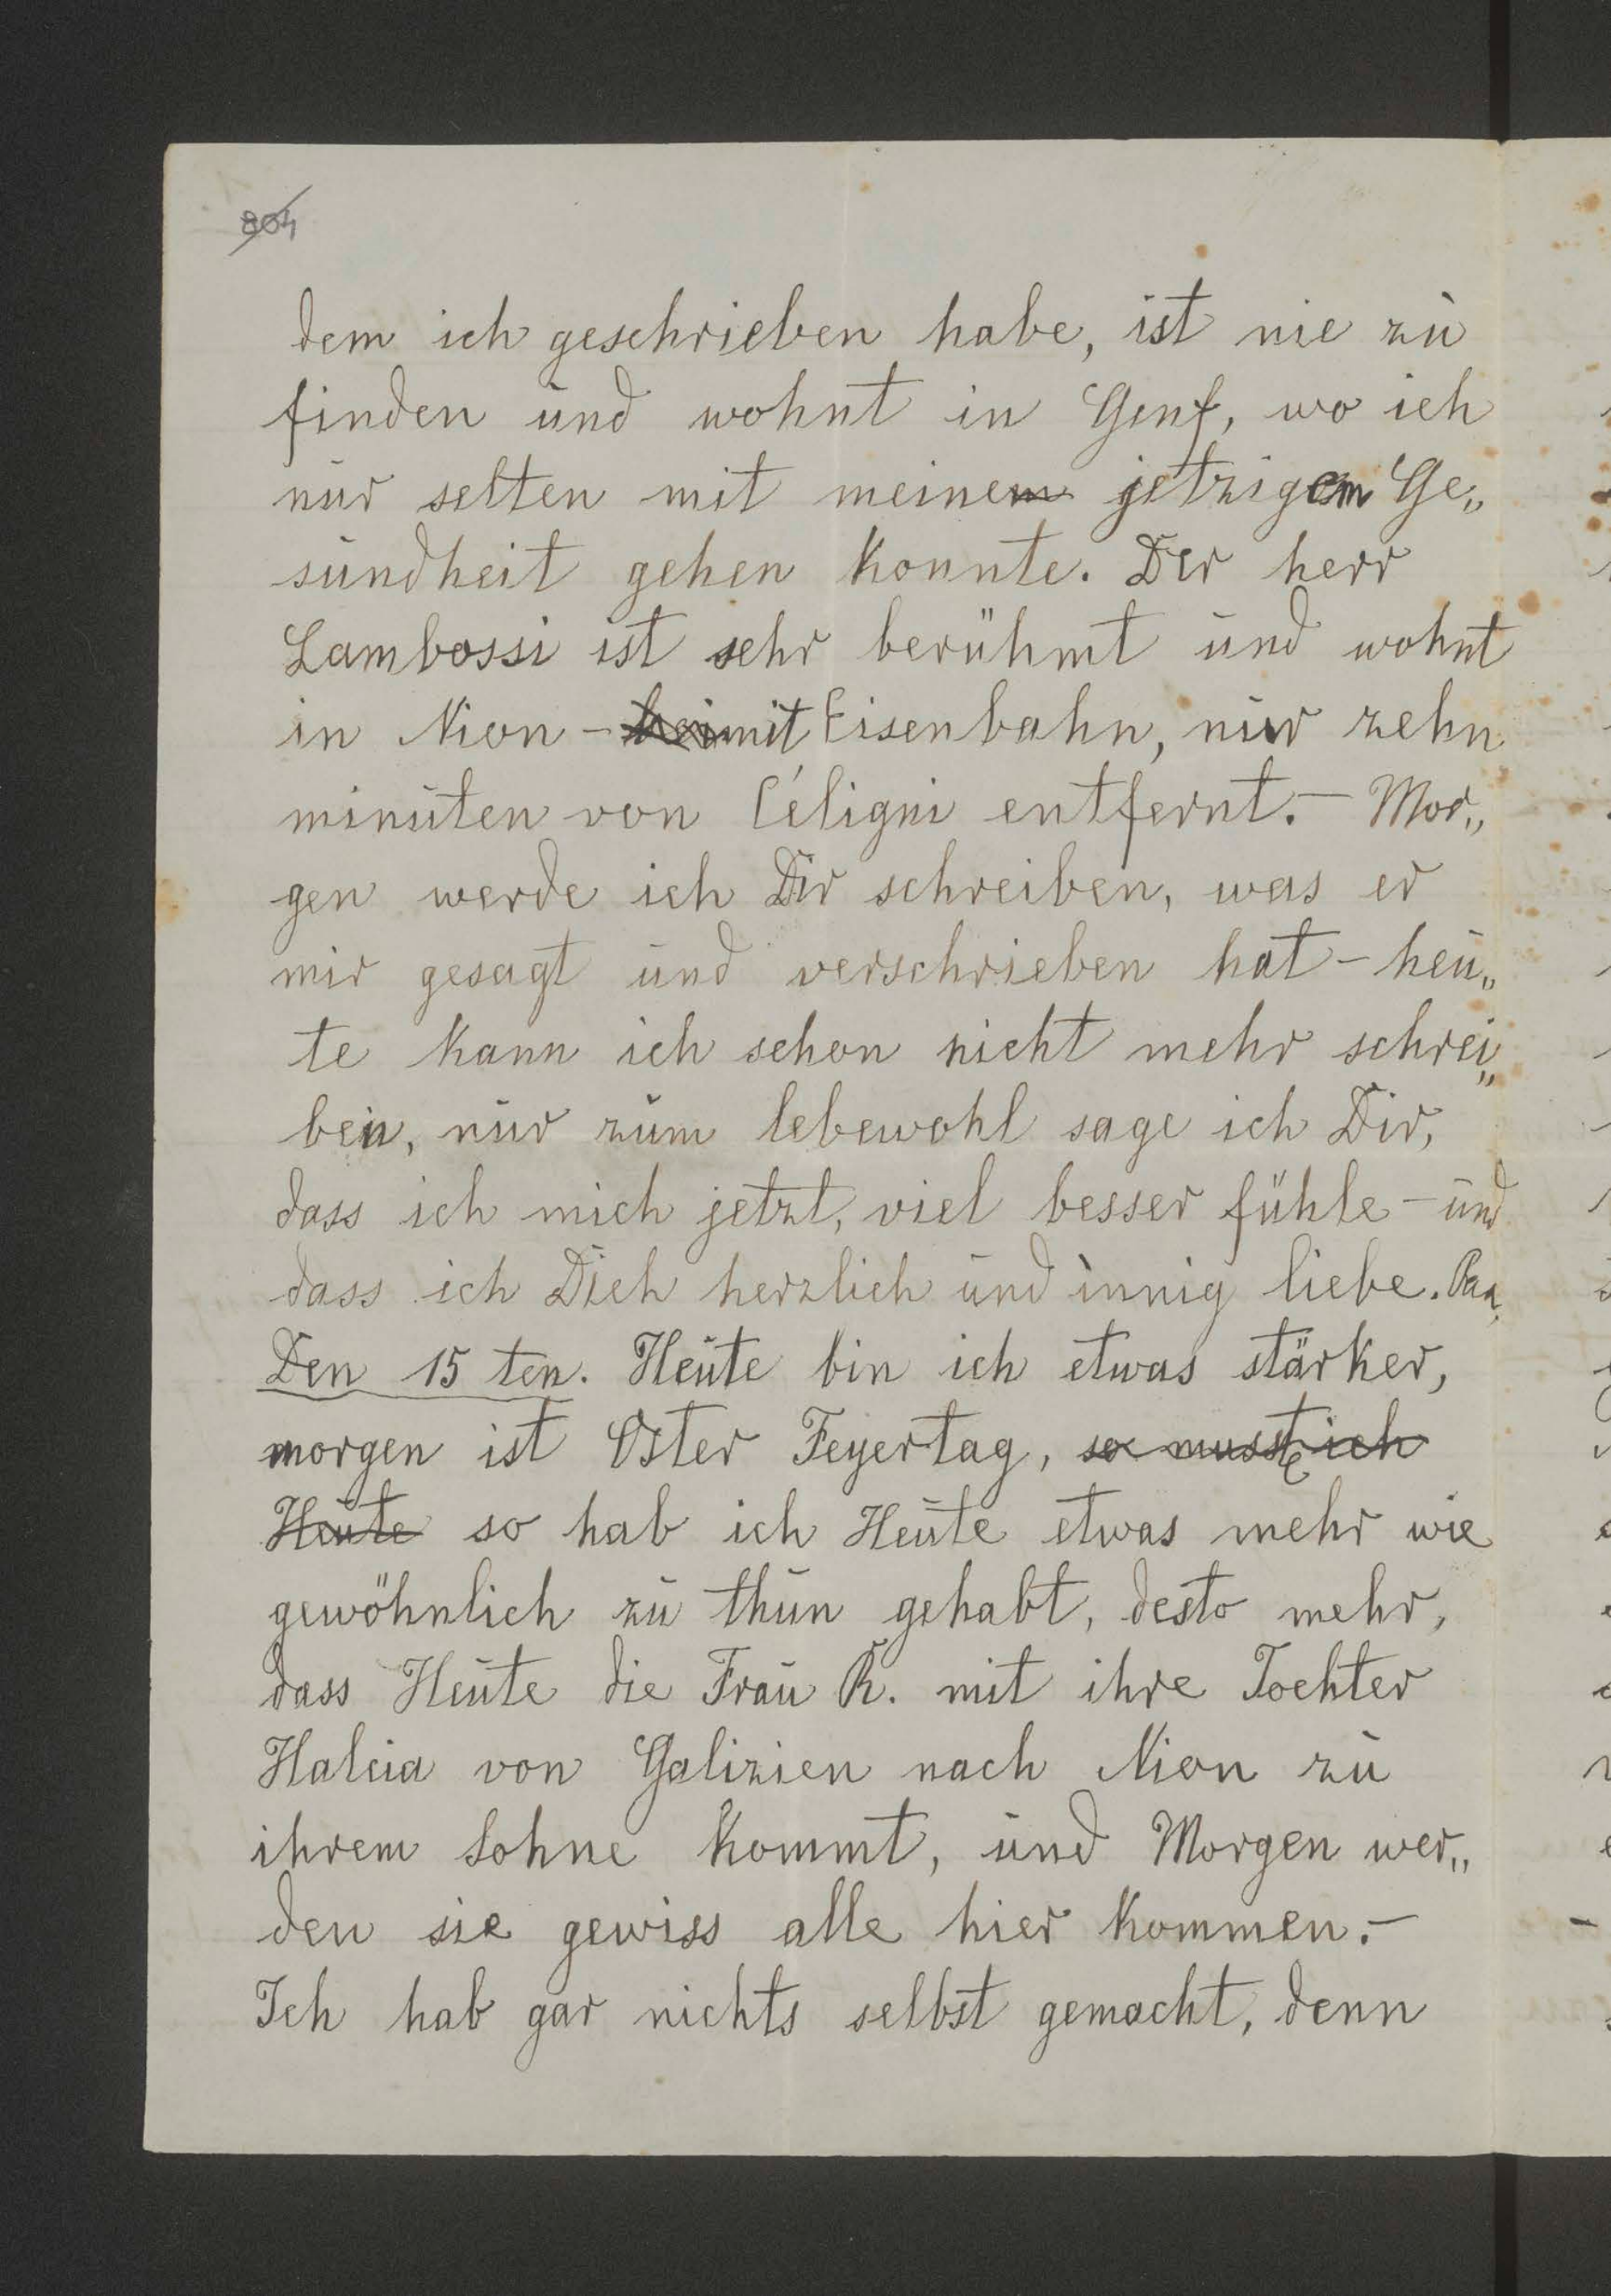 804
dem ich geschrieben habe, ist nie zu
finden und wohnt in Genf, wo ich
nur selten mit meinem jetzigem Ge„
sundheit gehen konnte. Der herr
Lambossi ist sehr berühmt und wohnt
in Nion - mit Eisenbahn, nur zehn
minuten von Céligni entfernt. - Mor„
gen werde ich Dir schreiben, was er
mir gesagt und verschrieben hat - heu„
te kann ich schon nicht mehr schrei„
ben, nur zum lebewohl sage ich Dir,
dass ich mich jetzt, viel besser fühle - und
dass ich Dich herzlich und innig liebe. Paa
Den 15 ten. Heute bin ich etwas stärker,
morgen ist Oster Feyertag, so musste ich
Heute so hab ich Heute etwas mehr wie
gewöhnlich zu thun gehabt, desto mehr,
dass Heute die Frau R. mit ihre Tochter
Halcia von Galizien nach Nion zu
ihrem Sohne kommt, und Morgen wer„
den sie gewiss alle hier kommen. -
Ich hab gar nichts selbst gemacht, denn